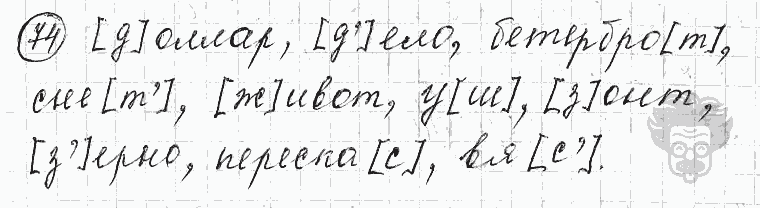 74 [д]оллар, [д']ело, бетербро[т],
сне[т'], [ж]ивот, у[ш], [з]онт,
[з']ерно, переска[с], вя[с'].